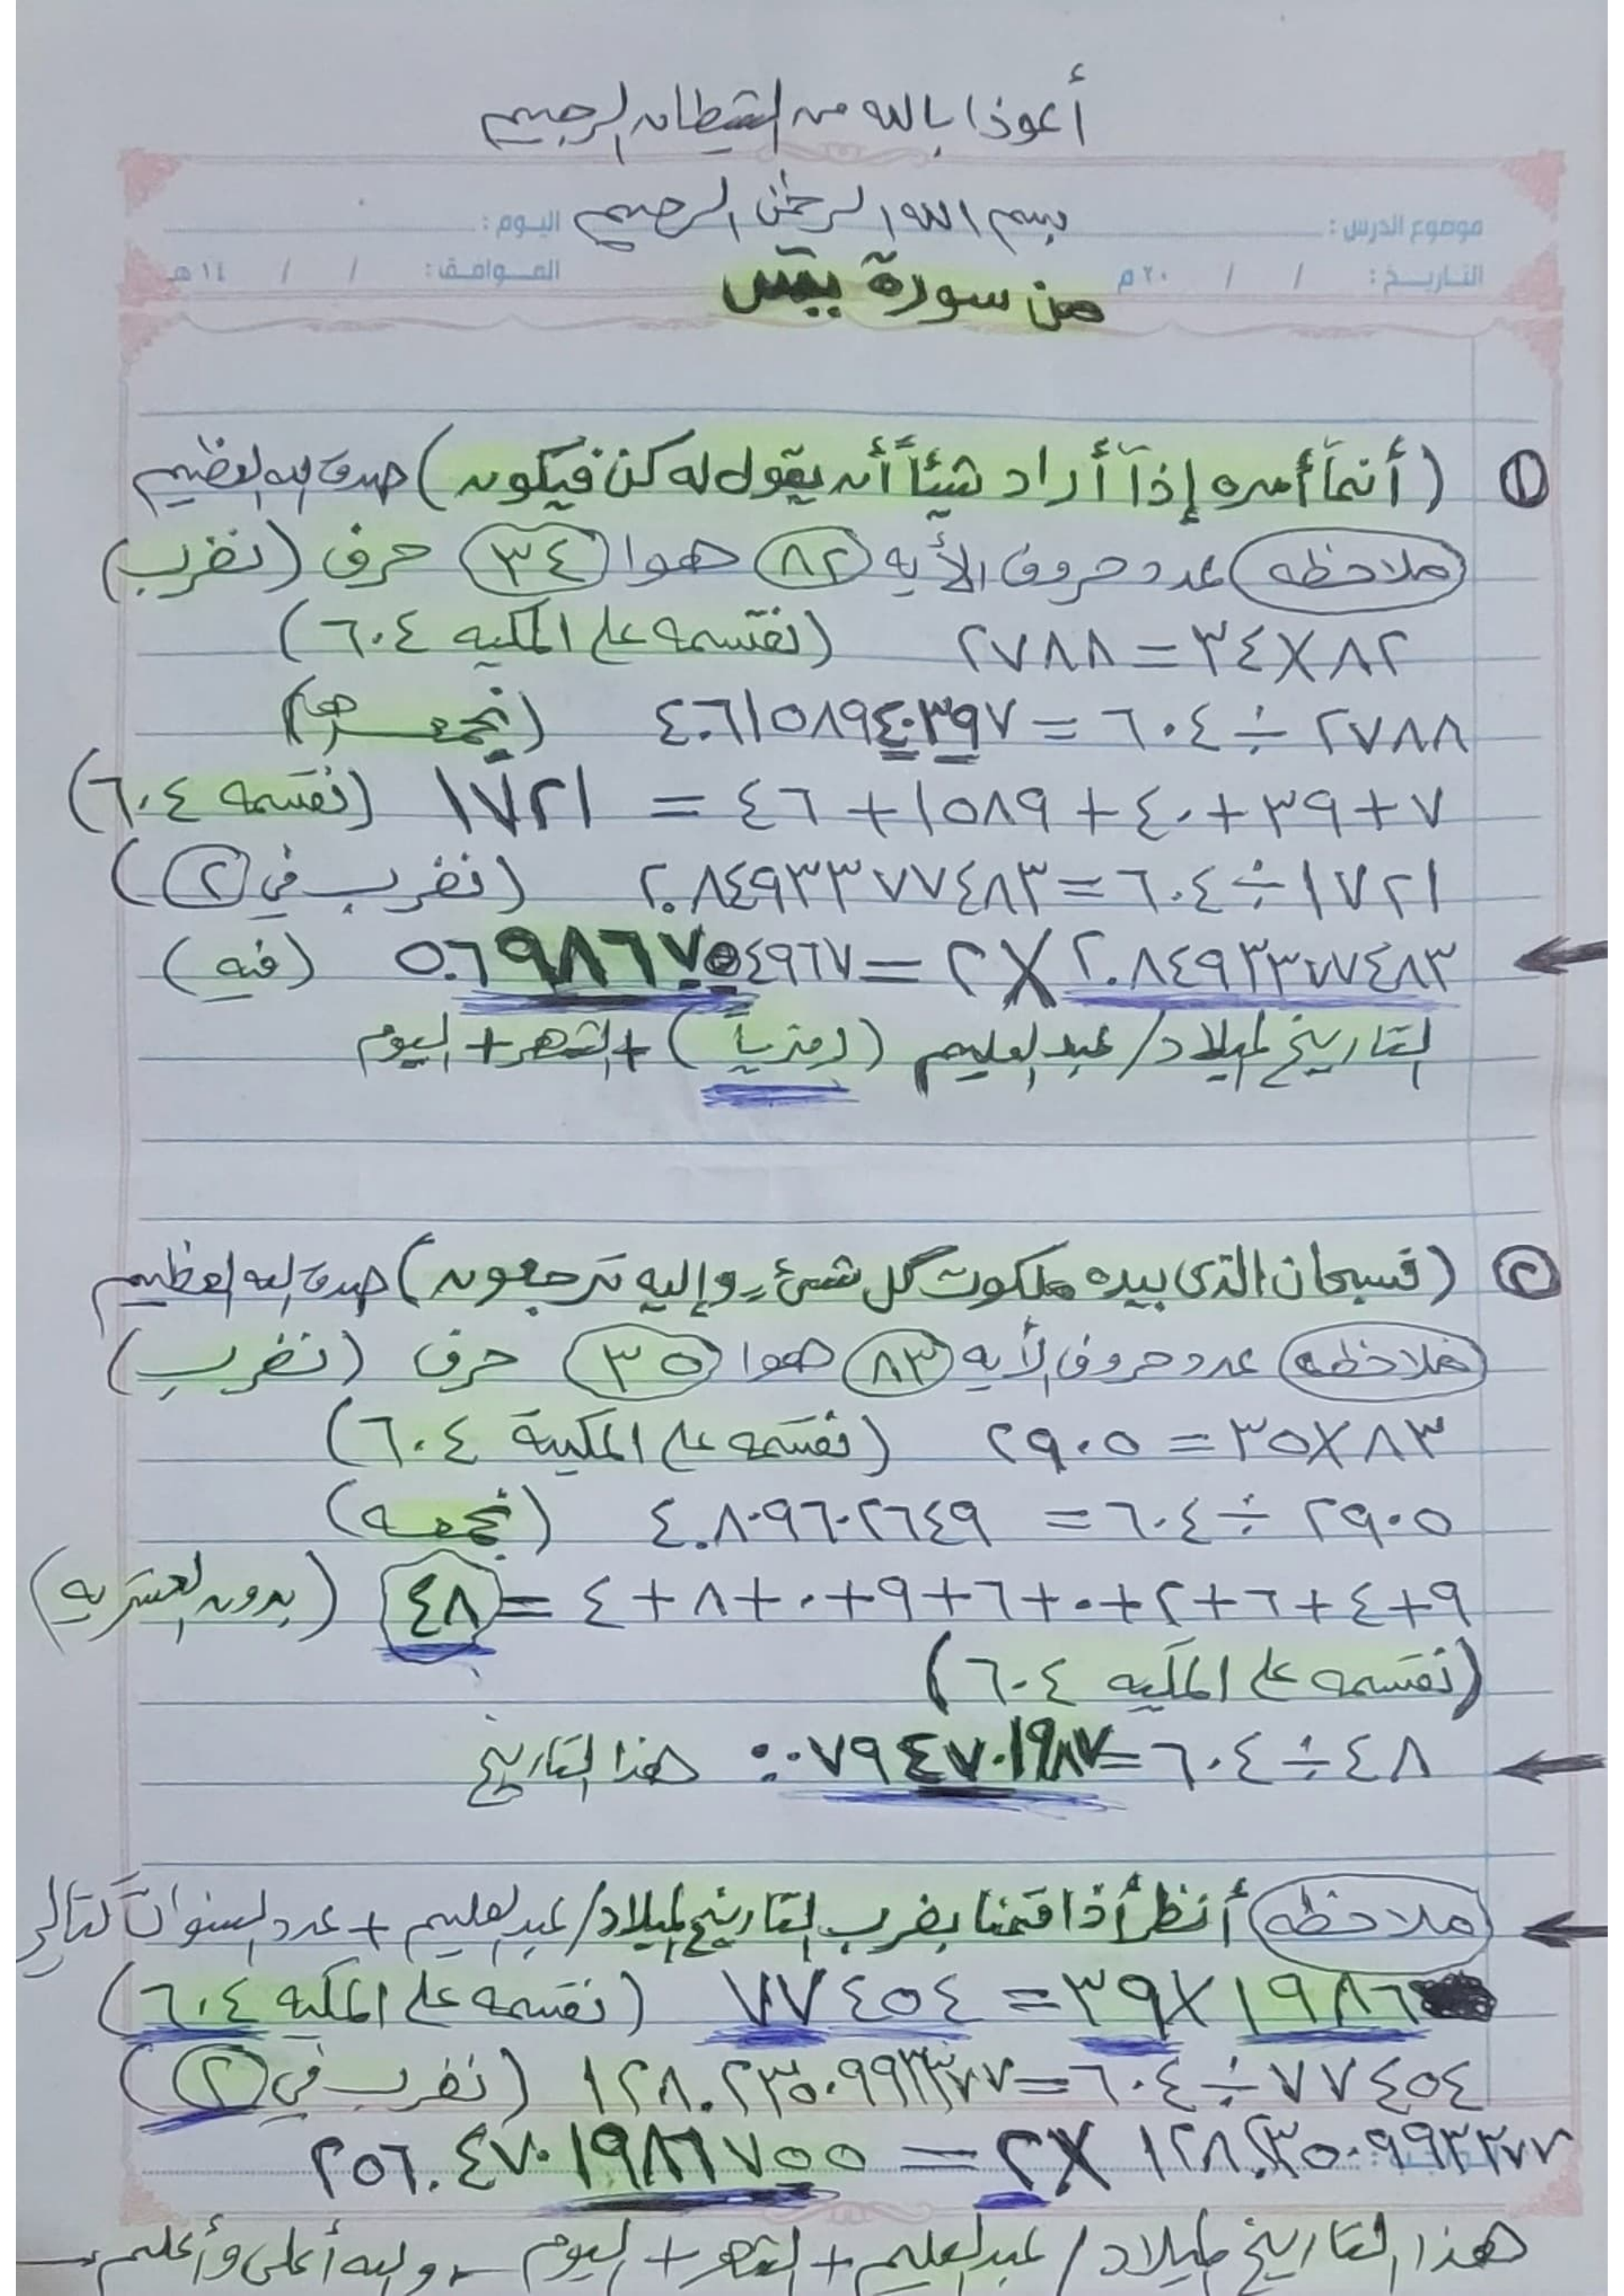 أعوذ بالله من الشيطان الرجيم
بسم الله الرحمن الرحيم
موضوع الدرس: اليوم:
التاريخ: / / ٢٠ م الموافق: / / ١٤ هـ
من سورة يس
١ (أنمآ أمره إذآ أراد شيئاً أن يقول له كن فيكون) صدق الله العظيم
ملاحظه عدد حروف الأيه ٨٢ هوا ٣٤ حرف (نضرب)
٨٢ × ٣٤ = ٢٧٨٨ (نقسمه على المكيه ٦٠٤)
٢٧٨٨ ÷ ٦٠٤ = ٤.٦١٥٨٩٤٠٣٩٧ (نجمعها)
٧ + ٣٩ + ٤٠ + ١٥٨٩ + ٤٦ = ١٧٢١ (نقسمه ٦٠٤)
١٧٢١ ÷ ٦٠٤ = ٢.٨٤٩٣٣٧٧٤٨٣ (نضرب في ٢)
٢.٨٤٩٣٣٧٧٤٨٣ × ٢ = ٥.٦٩٨٦٧٥٤٩٦٧ (فيه)
التاريخ لميلاد / عبدالعليم (رمزياً) + الشهر + اليوم
٢ (فسبحان الذى بيده ملكوت كل شىءٍ وإليه ترجعون) صدق الله العظيم
ملاحظه عدد حروف الأيه ٨٣ هوا ٣٥ حرف (نضرب)
٨٣ × ٣٥ = ٢٩٠٥ (نقسمه على المكية ٦٠٤)
٢٩٠٥ ÷ ٦٠٤ = ٤.٨٠٩٦٠٢٦٤٩ (نجمعه)
٩ + ٤ + ٦ + ٢ + ٠ + ٦ + ٩ + ٠ + ٨ + ٤ = ٤٨ (بدون العشريه)
(نقسمه على المكيه ٦٠٤)
٤٨ ÷ ٦٠٤ = ٠.٠٧٩٤٧٠١٩٨٧ هذا التاريخ
ملاحظه أنظر أذا قمنا بضرب التاريخ لميلاد / عبدالعليم + عدد السنوات كتالي
١٩٨٦ × ٣٩ = ٧٧٤٥٤ (نقسمه على المكيه ٦٠٤)
٧٧٤٥٤ ÷ ٦٠٤ = ١٢٨.٢٣٥٠٩٩٣٣٧٧ (نضرب في ٢)
١٢٨.٢٣٥٠٩٩٣٣٧٧ × ٢ = ٢٥٦.٤٧٠١٩٨٦٧٥٥
هذا التاريخ لميلاد / عبدالعليم + الشهر + اليوم - والله أعلى وأعلم -